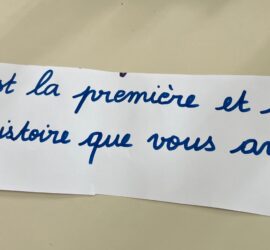 st la première et
istoire que vous